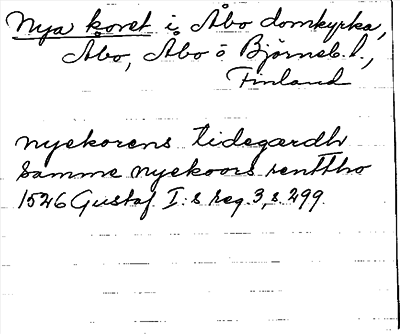 Nya koret i Åbo domkyrka,
Åbo, Åbo o Björneb. l.,
Finland
nyekorens tidegærdh
samme nyekoors renttho
1526 Gustaf I:s reg. 3, s. 299.